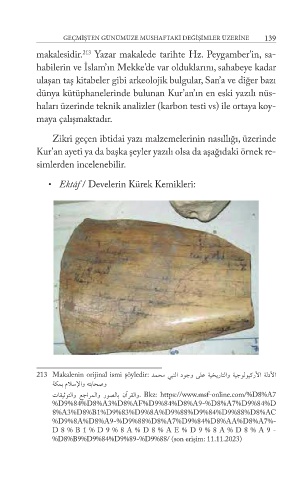 GEÇMİŞTEN GÜNÜMÜZE MUSHAFTAKİ DEĞİŞİMLER ÜZERİNE 139
makalesidir.²¹³ Yazar makalede tarihte Hz. Peygamber'in, sa-
habilerin ve İslam'ın Mekke'de var olduklarını, sahabeye kadar
ulaşan taş kitabeler gibi arkeolojik bulgular, San'a ve diğer bazı
dünya kütüphanelerinde bulunan Kur'an'ın en eski yazılı nüs-
haları üzerinde teknik analizler (karbon testi vs) ile ortaya koy-
maya çalışmaktadır.
Zikri geçen ibtidai yazı malzemelerinin nasıllığı, üzerinde
Kur'an ayeti ya da başka şeyler yazılı olsa da aşağıdaki örnek re-
simlerden incelenebilir.
• Ektâf / Develerin Kürek Kemikleri:
213 Makalenin orijinal ismi şöyledir: الأدلة الأركيولوجية والتاريخية على وجود النبي محمد
وصحابته والإسلام بمكة
والقرآن بالصور والمراجع والتوثيقات. Bkz: https://www.ssrf-online.com/%D8%A7
%D9%84%D8%A3%D8%AF%D9%84%D8%A9-%D8%A7%D9%84%D
8%A3%D8%B1%D9%83%D9%8A%D9%88%D9%84%D9%88%D8%AC
%D9%8A%D8%A9-%D9%88%D8%A7%D9%84%D8%AA%D8%A7%-
D8%B1%D9%8A%D8%AE%D9%8A%D8%A9-
%D8%B9%D9%84%D9%89-%D9%88/ (son erişim: 11.11.2023)